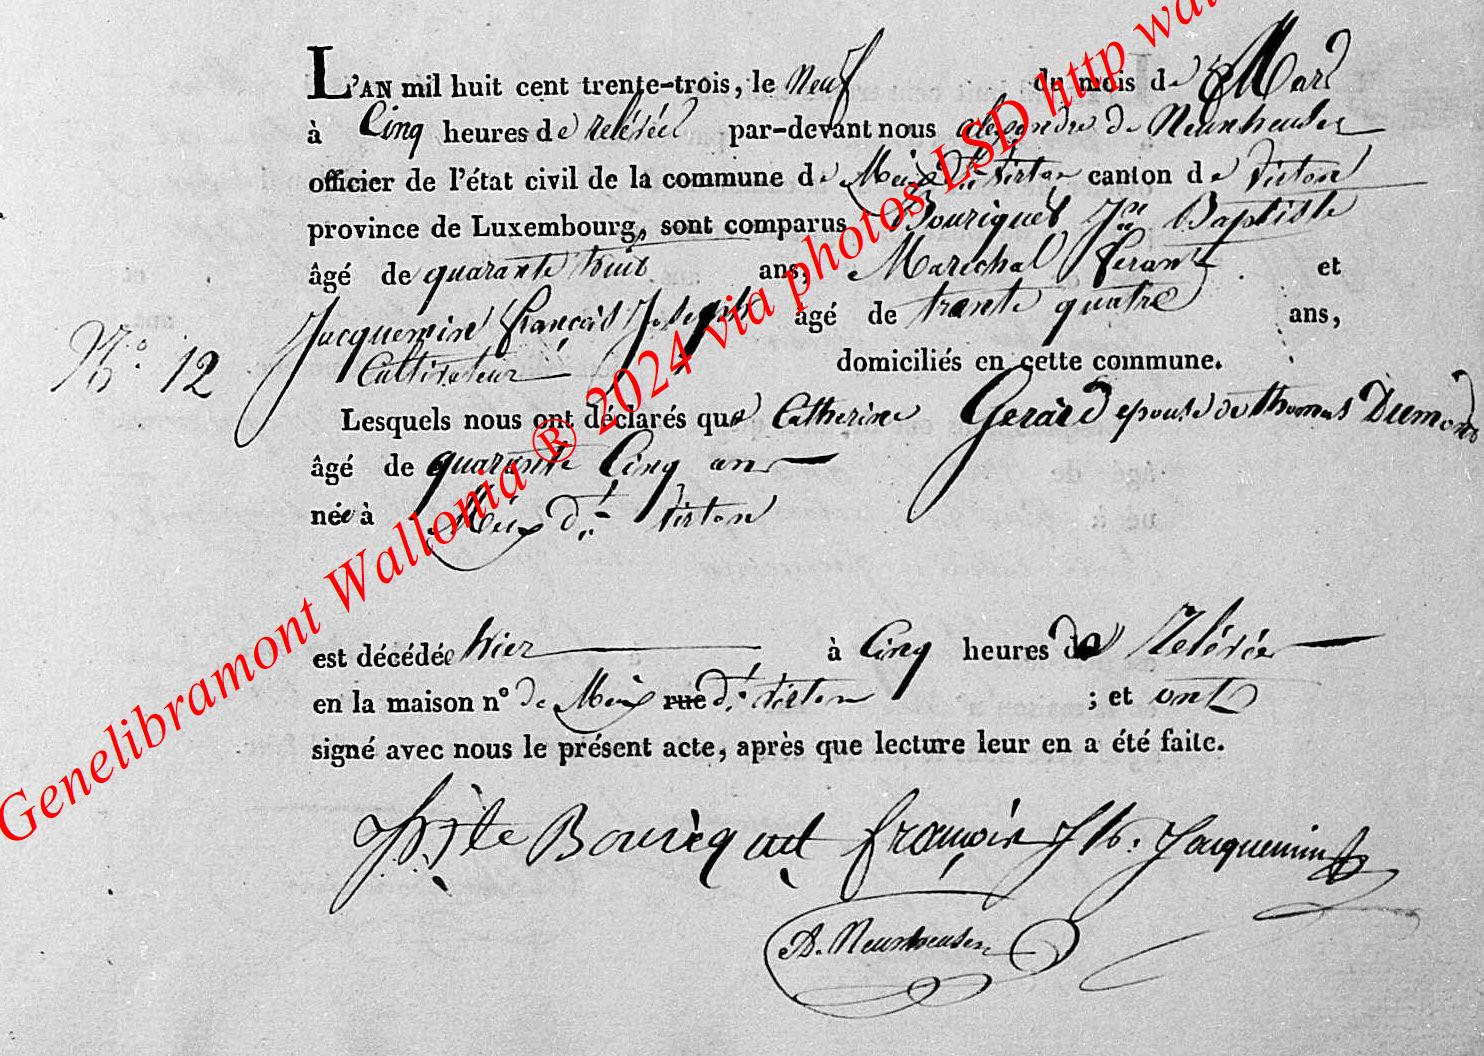 L'AN mil huit cent trente-trois, le Neuf du mois de Mars
à Cinq heures de relévéés par-devant nous alexandre de Neunheuser
officier de l'état civil de la commune de Meix dt virton canton de virton
province de Luxembourg, sont comparus Bouriquet Jn Baptiste
âgé de quarante huit ans, Maréchal ferant et
Jacquemin françois Joseph âgé de trente quatre ans,
N.° 12
Cultivateur domiciliés en cette commune.
Lesquels nous ont déclarés que Catherine Gerard epouse de thomas Dumont
âgé de quarante Cinq ans
née à Meix dt virton
est décédée hier à Cinq heures de Relévée
en la maison n° de Meix rue dt virton ; et ont
signé avec nous le présent acte, après que lecture leur en a été faite.
Bte Bouriquet françois Jh. Jacquemin
A. Neunheuser
Genelibramont Wallonia ® 2024 via photos LSD http wal